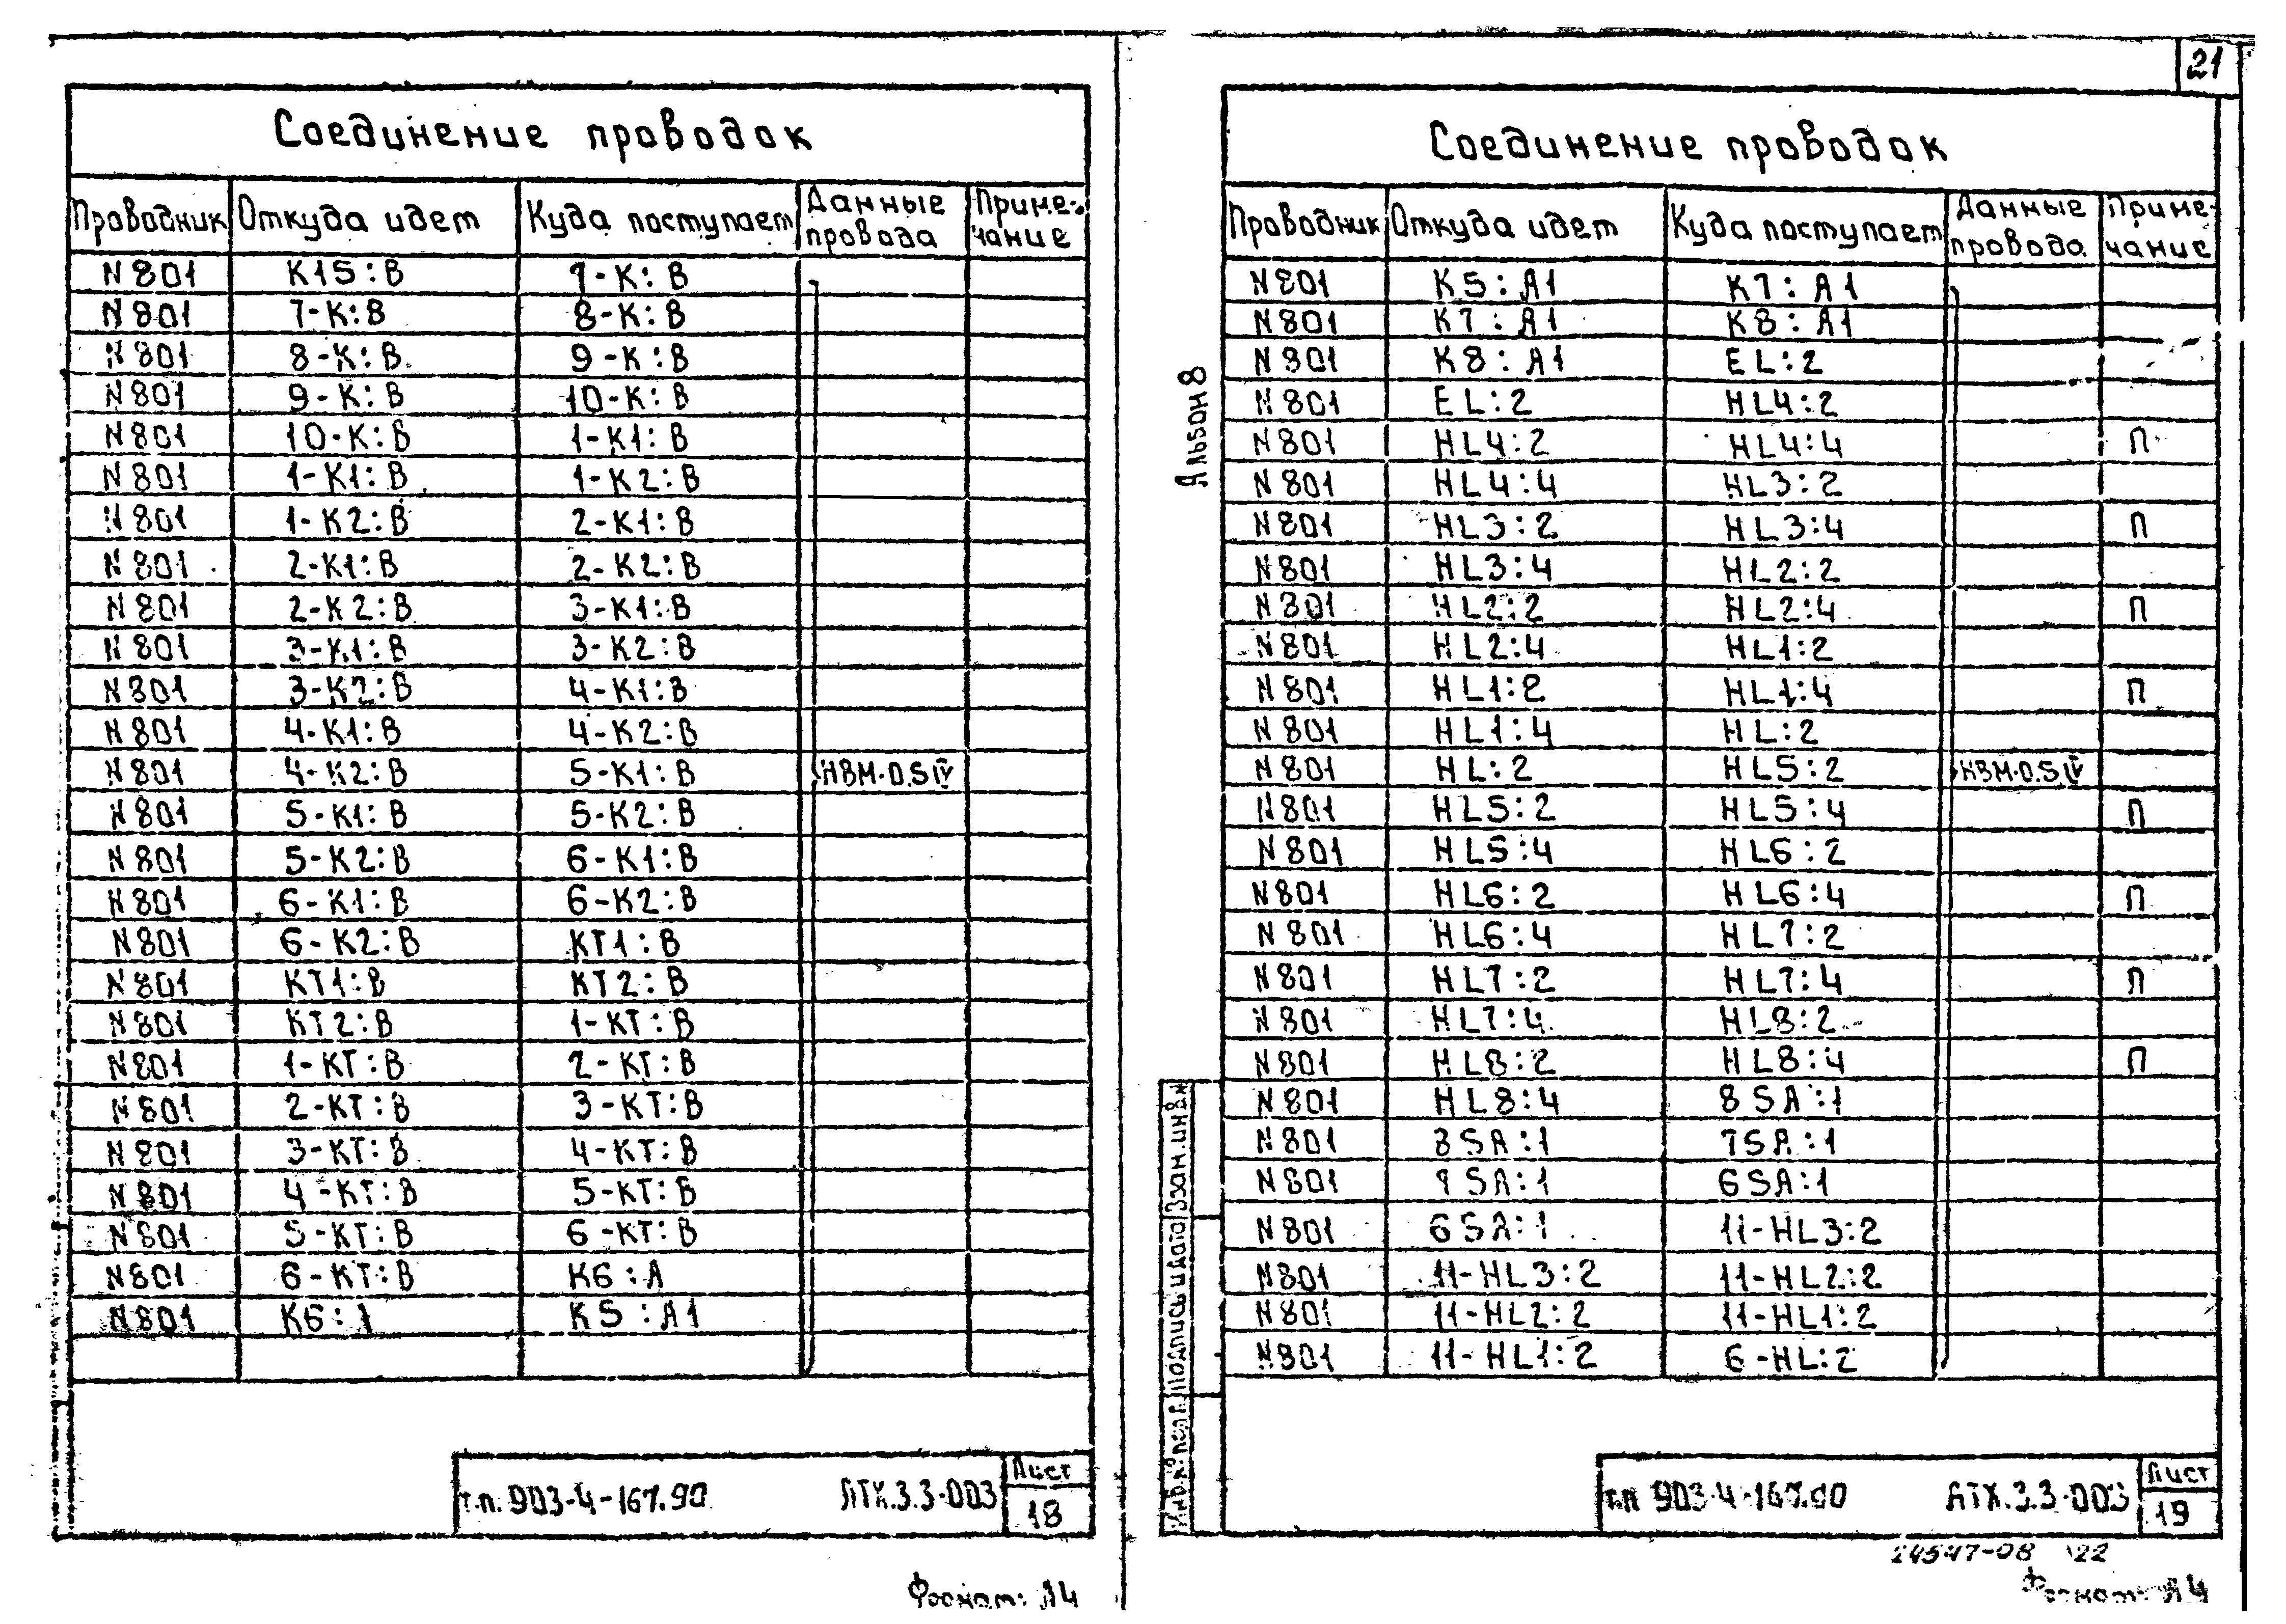 21
Соединение проводок
Проводник Откуда идет Куда поступает Данные провода Приме-чание
N801 К15:В 7-К:В
N801 7-К:В 8-К:В
N801 8-К:В 9-К:В
N801 9-К:В 10-К:В
N801 10-К:В 1-К1:В
N801 1-К1:В 1-К2:В
N801 1-К2:В 2-К1:В
N801 2-К1:В 2-К2:В
N801 2-К2:В 3-К1:В
N801 3-К1:В 3-К2:В
N801 3-К2:В 4-К1:В
N801 4-К1:В 4-К2:В
N801 4-К2:В 5-К1:В НВМ-0.5 IV
N801 5-К1:В 5-К2:В
N801 5-К2:В 6-К1:В
N801 6-К1:В 6-К2:В
N801 6-К2:В КТ1:В
N801 КТ1:В КТ2:В
N801 КТ2:В 1-КТ:В
N801 1-КТ:В 2-КТ:В
N801 2-КТ:В 3-КТ:В
N801 3-КТ:В 4-КТ:В
N801 4-КТ:В 5-КТ:В
N801 5-КТ:В 6-КТ:В
N801 6-КТ:В К6:А
N801 К6:А К5:А1
т.п. 903-4-167.90 АТХ.3.3-003 Лист
18
Формат: А4
Соединение проводок
Проводник Откуда идет Куда поступает Данные провода Приме-чание
N801 К5:А1 К7:А1
N801 К7:А1 К8:А1
N801 К8:А1 EL:2
N801 EL:2 HL4:2
N801 HL4:2 HL4:4 П
N801 HL4:4 HL3:2
N801 HL3:2 HL3:4 П
N801 HL3:4 HL2:2
N801 HL2:2 HL2:4 П
N801 HL2:4 HL1:2
N801 HL1:2 HL1:4 П
N801 HL1:4 HL:2
N801 HL:2 HL5:2 НВМ-0.5 IV
N801 HL5:2 HL5:4 П
N801 HL5:4 HL6:2
N801 HL6:2 HL6:4 П
N801 HL6:4 HL7:2
N801 HL7:2 HL7:4 П
N801 HL7:4 HL8:2
N801 HL8:2 HL8:4 П
N801 HL8:4 8SA:1
N801 8SA:1 7SA:1
N801 7SA:1 6SA:1
N801 6SA:1 11-HL3:2
N801 11-HL3:2 11-HL2:2
N801 11-HL2:2 11-HL1:2
N801 11-HL1:2 6-HL:2
Альбом 8
Взам. инв. №
Подпись и дата
Инв. № подл.
т.п 903-4-167.90 АТХ.3.3-003 Лист
19
24547-08 22
Формат: А4